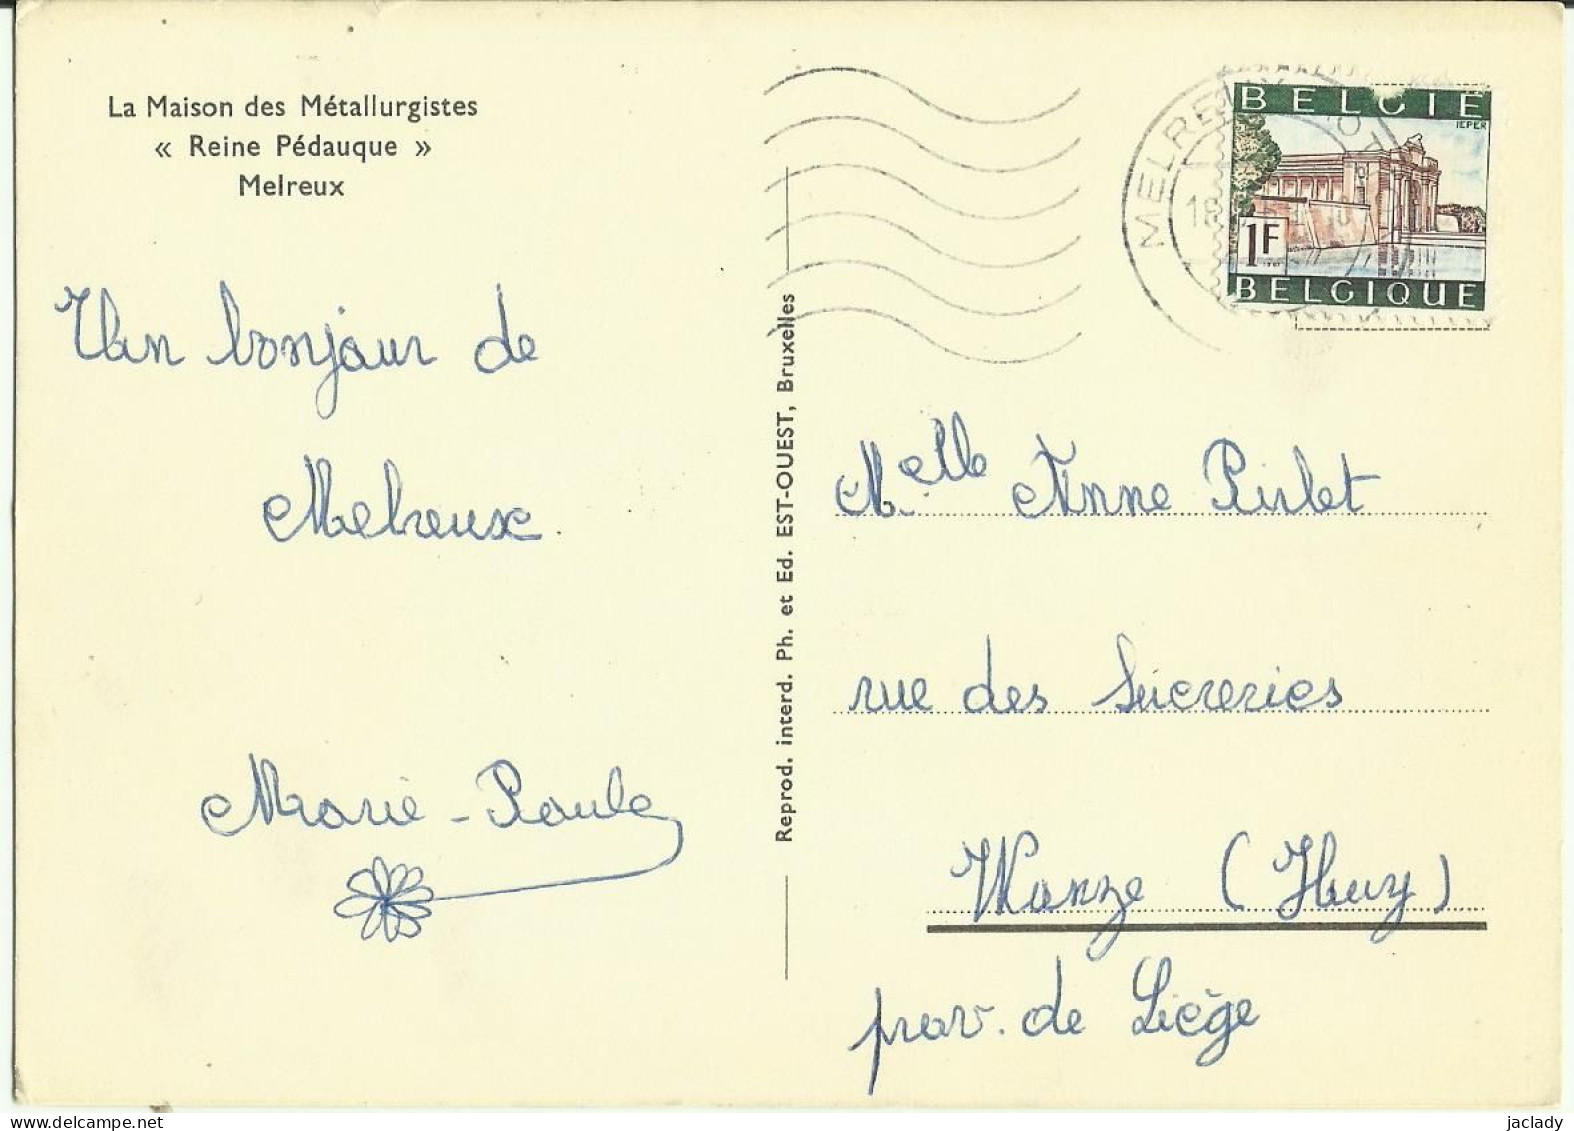 La Maison des Métallurgistes
« Reine Pédauque »
Melreux
Un bonjour de
Melreux.
Marie-Paule
Reprod. interd. Ph. et Ed. EST-OUEST, Bruxelles
MELREUX
18
BELGIË
IEPER
1F
BELGIQUE
Melle Anne Pirlet
rue des Sucreries
Wanze (Huy)
prov. de Liège
jaclady